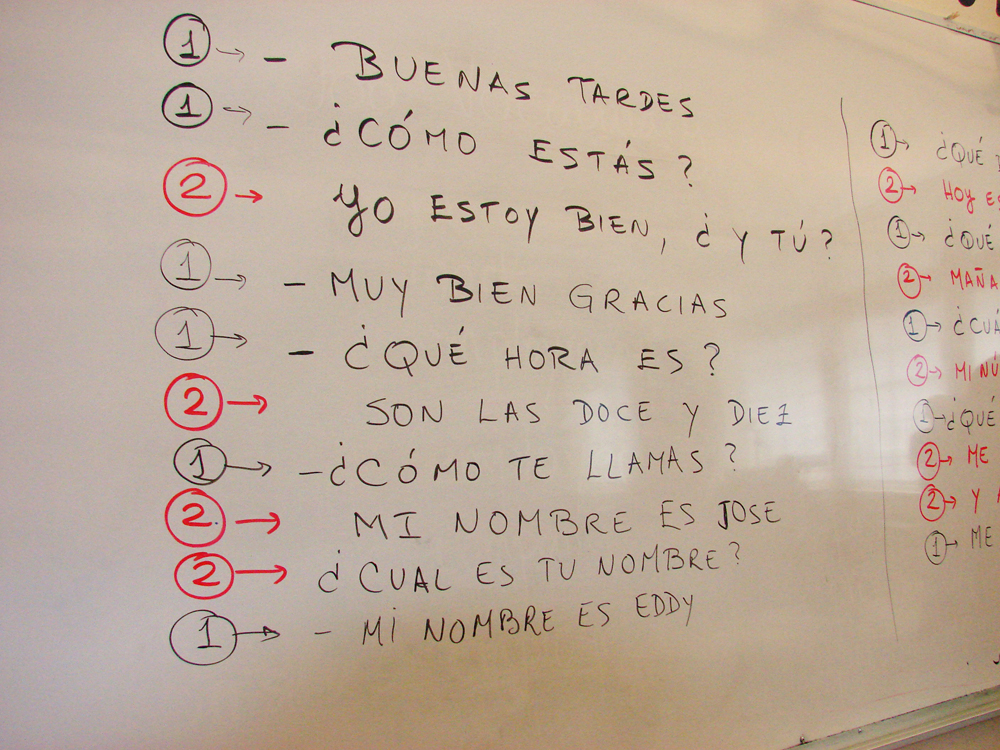 1 → - BUENAS TARDES
1 → - ¿CÓMO ESTÁS?
2 → YO ESTOY BIEN, ¿Y TÚ?
1 → - MUY BIEN GRACIAS
1 → - ¿QUÉ HORA ES?
2 → SON LAS DOCE Y DIEZ
1 → - ¿CÓMO TE LLAMAS?
2 → MI NOMBRE ES JOSE
2 → ¿CUAL ES TU NOMBRE?
1 → - MI NOMBRE ES EDDY
1 → ¿QUÉ
2 → HOY
1 → ¿QUÉ
2 →
1 →
2 → MI
1 → ¿QUÉ
2 → ME
2 → Y
1 → ME